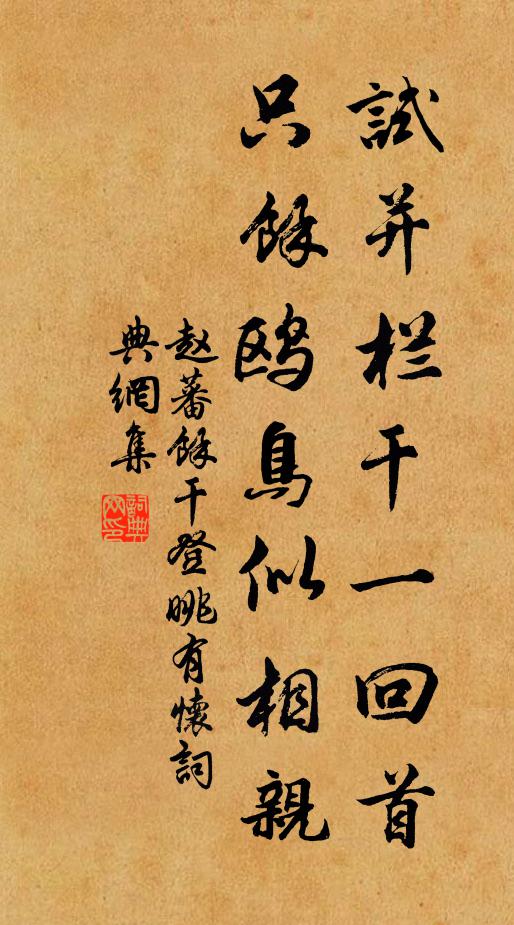 試并栏干一回首
只餘鸥鳥似相親
赵蕃餘干登眺有懷詞
典網集
詞典網印